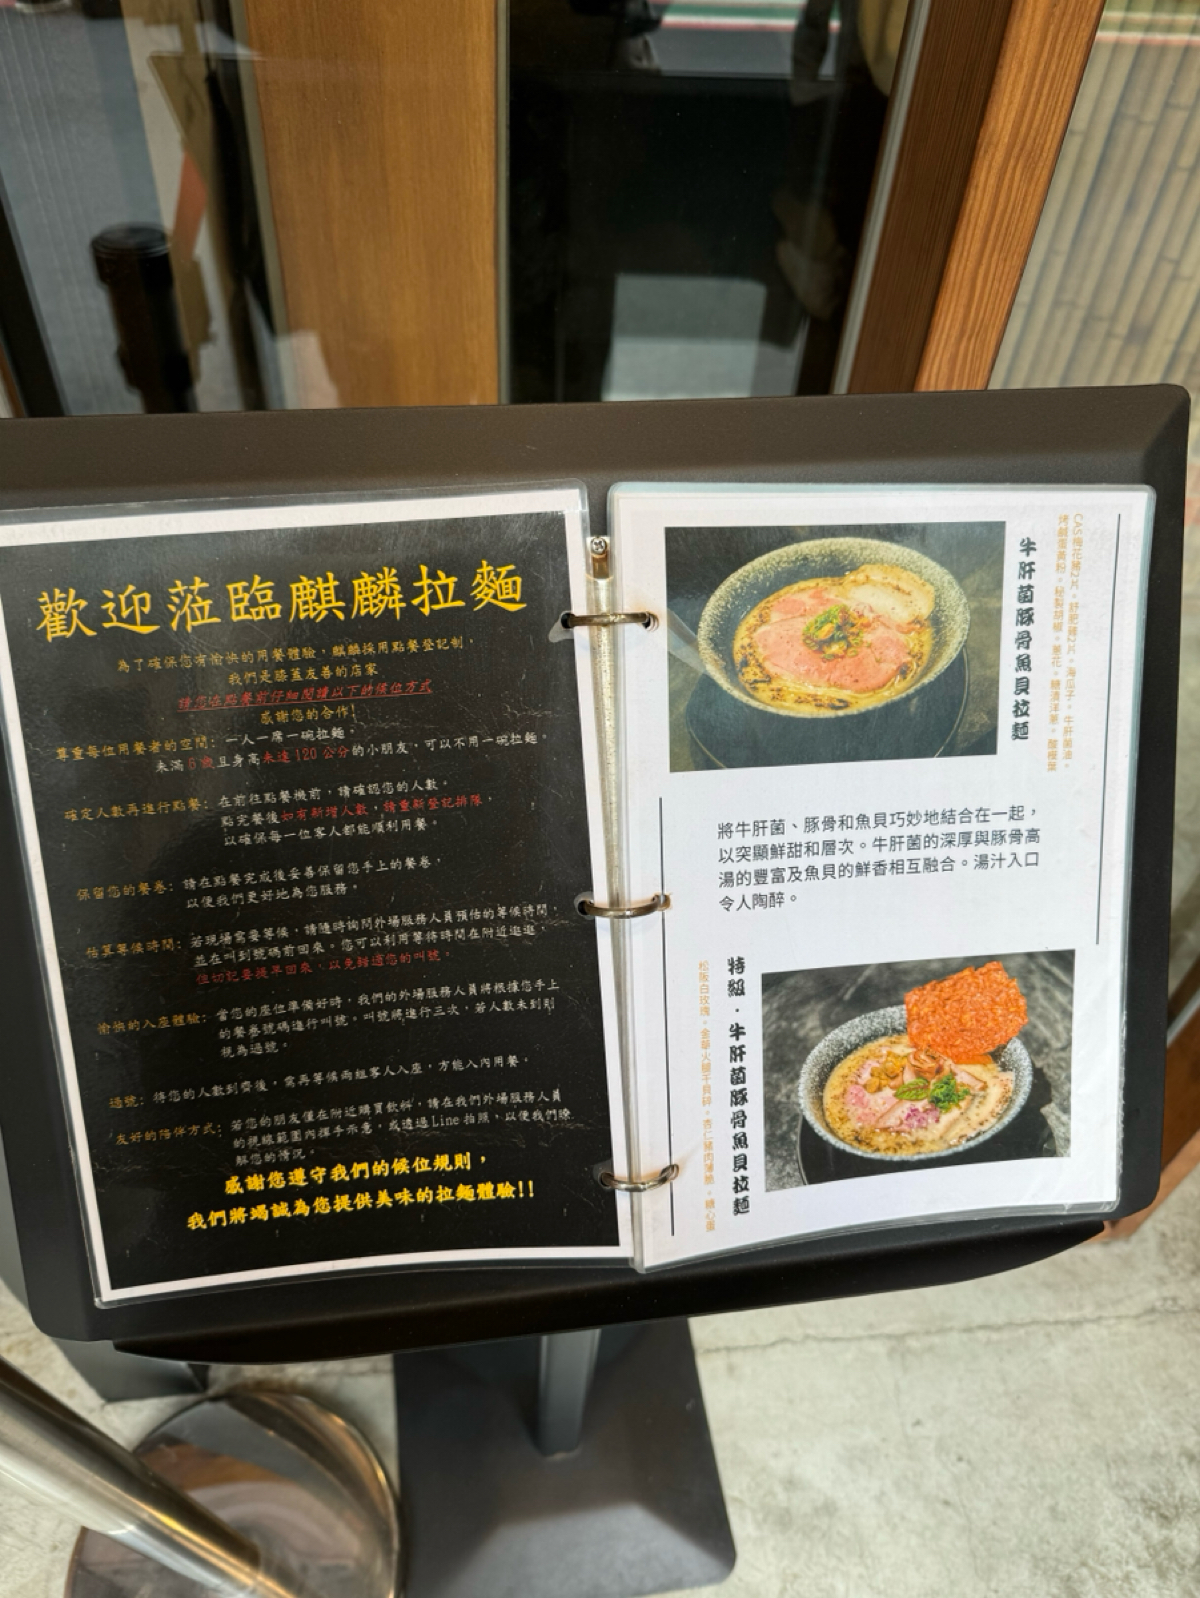 歡迎蒞臨麒麟拉麵
為了確保您有愉快的用餐體驗，麒麟採用點餐登記制，
我們是膝蓋友善的店家
請您在點餐前仔細閱讀以下的候位方式
感謝您的合作!
尊重每位用餐者的空間：一人一席一碗拉麵。
未滿6歲且身高未達120公分的小朋友，可以不用一碗拉麵。
確定人數再進行點餐：在前往點餐機前，請確認您的人數。
點完餐後如有新增人數，請重新登記排隊，
以確保每一位客人都能順利用餐。
保留您的餐卷：請在點餐完成後妥善保留您手上的餐卷，
以便我們更好地為您服務。
估算等候時間：若現場需要等候，請隨時詢問外場服務人員預估的等候時間，
並在叫到號碼前回來。您可以利用等待時間在附近逛逛，
但切記要提早回來，以免錯過您的叫號。
愉快的入座體驗：當您的座位準備好時，我們的外場服務人員將根據您手上
的餐卷號碼進行叫號。叫號將進行三次，若人數未到則
視為過號。
過號：待您的人數到齊後，需再等候兩組客人入座，方能入內用餐。
友好的陪伴方式：若您的朋友僅在附近購買飲料，請在我們外場服務人員
的視線範圍內揮手示意，或透過Line拍照，以便我們瞭
解您的情況。
感謝您遵守我們的候位規則，
我們將竭誠為您提供美味的拉麵體驗!!
CAS梅花豬2片。舒肥雞2片。海瓜子。牛肝菌油。
烤鹹蛋黃粉。秘製胡椒。蔥花。糖漬洋蔥。酸模葉
牛肝菌豚骨魚貝拉麵
將牛肝菌、豚骨和魚貝巧妙地結合在一起，
以突顯鮮甜和層次。牛肝菌的深厚與豚骨高
湯的豐富及魚貝的鮮香相互融合。湯汁入口
令人陶醉。
特級．牛肝菌豚骨魚貝拉麵
松阪白玫瑰。金華火腿干貝碎。杏仁豬肉薄脆。糖心蛋